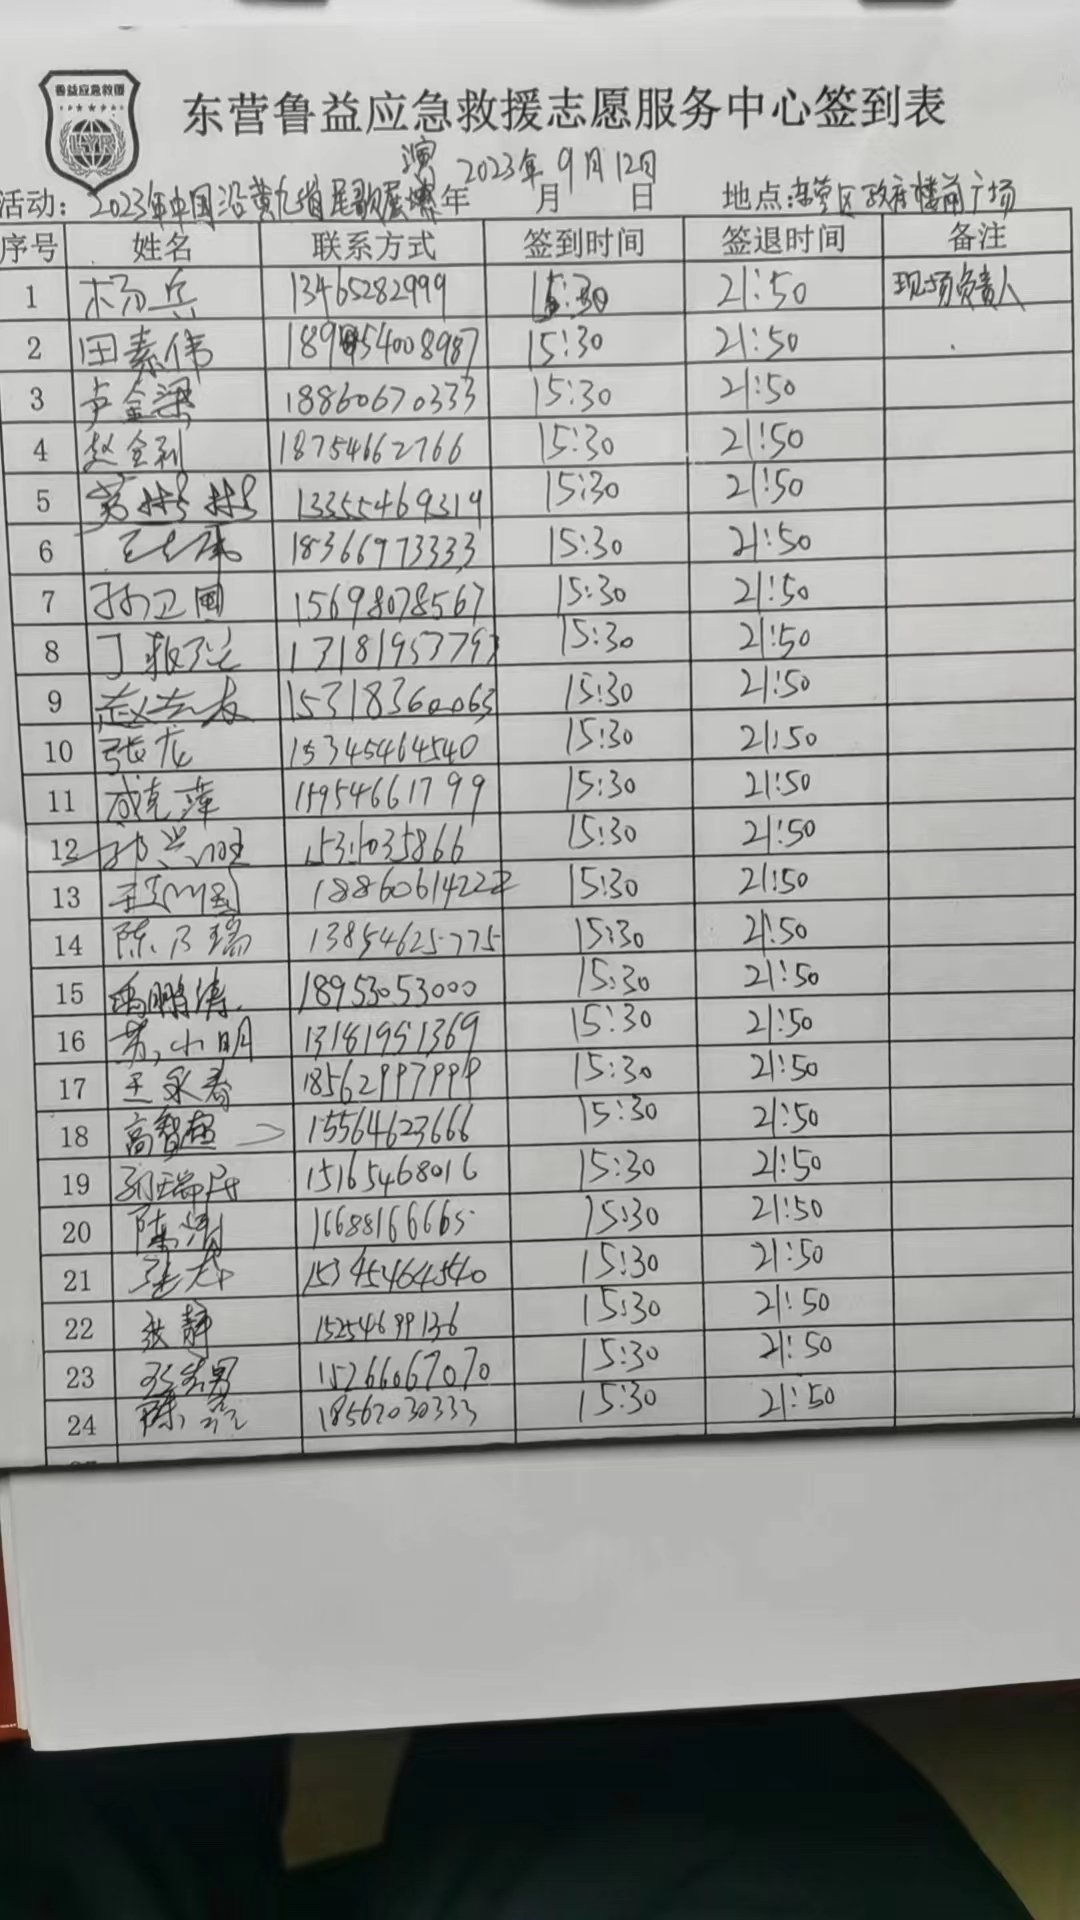 鲁益应急救援
东营鲁益应急救援志愿服务中心签到表
演 2023年9月12日
活动：2023年中国沿黄九省民歌展 年 月 日 地点：东营区政府楼前广场
序号 姓名 联系方式 签到时间 签退时间 备注
1 杨兵 13465282999 15:30 21:50 现场负责人
2 田素伟 15:30 21:50
3 卢金梁 18860670333 15:30 21:50
4 赵金利 18754662766 15:30 21:50
5 13355469314 15:30 21:50
6 18366973333 15:30 21:50
7 孙卫国 15698078567 15:30 21:50
8 13181957793 15:30 21:50
9 赵志友 15318360063 15:30 21:50
10 张龙 15345464540 15:30 21:50
11 成克萍 15954661799 15:30 21:50
12 15:30 21:50
13 15:30 21:50
14 陈乃瑞 13854625775 15:30 21:50
15 禹鹏涛 18953053000 15:30 21:50
16 苏小明 13181951369 15:30 21:50
17 王永春 18562997999 15:30 21:50
18 高智超 15564623666 15:30 21:50
19 孙瑞民 15165468016 15:30 21:50
20 16688166665 15:30 21:50
21 15345464540 15:30 21:50
22 张静 15254699136 15:30 21:50
23 15266067070 15:30 21:50
24 陈磊 18562030333 15:30 21:50